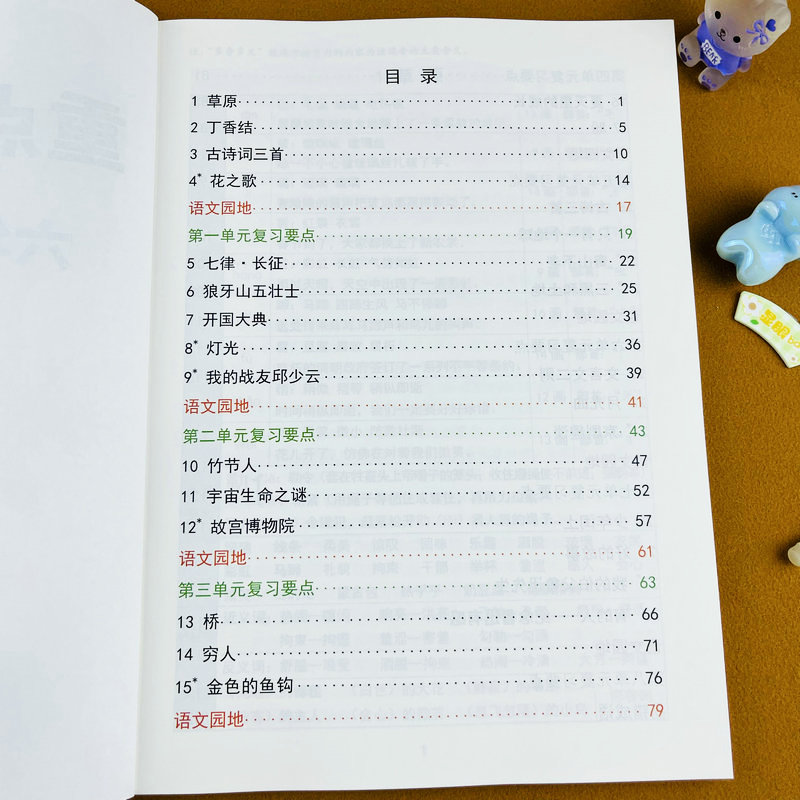 目 录
1 草原 1
2 丁香结 5
3 古诗词三首 10
4* 花之歌 14
语文园地 17
第一单元复习要点 19
5 七律·长征 22
6 狼牙山五壮士 25
7 开国大典 31
8* 灯光 36
9* 我的战友邱少云 39
语文园地 41
第二单元复习要点 43
10 竹节人 47
11 宇宙生命之谜 52
12* 故宫博物院 57
语文园地 61
第三单元复习要点 63
13 桥 66
14 穷人 71
15* 金色的鱼钩 76
语文园地 79
1